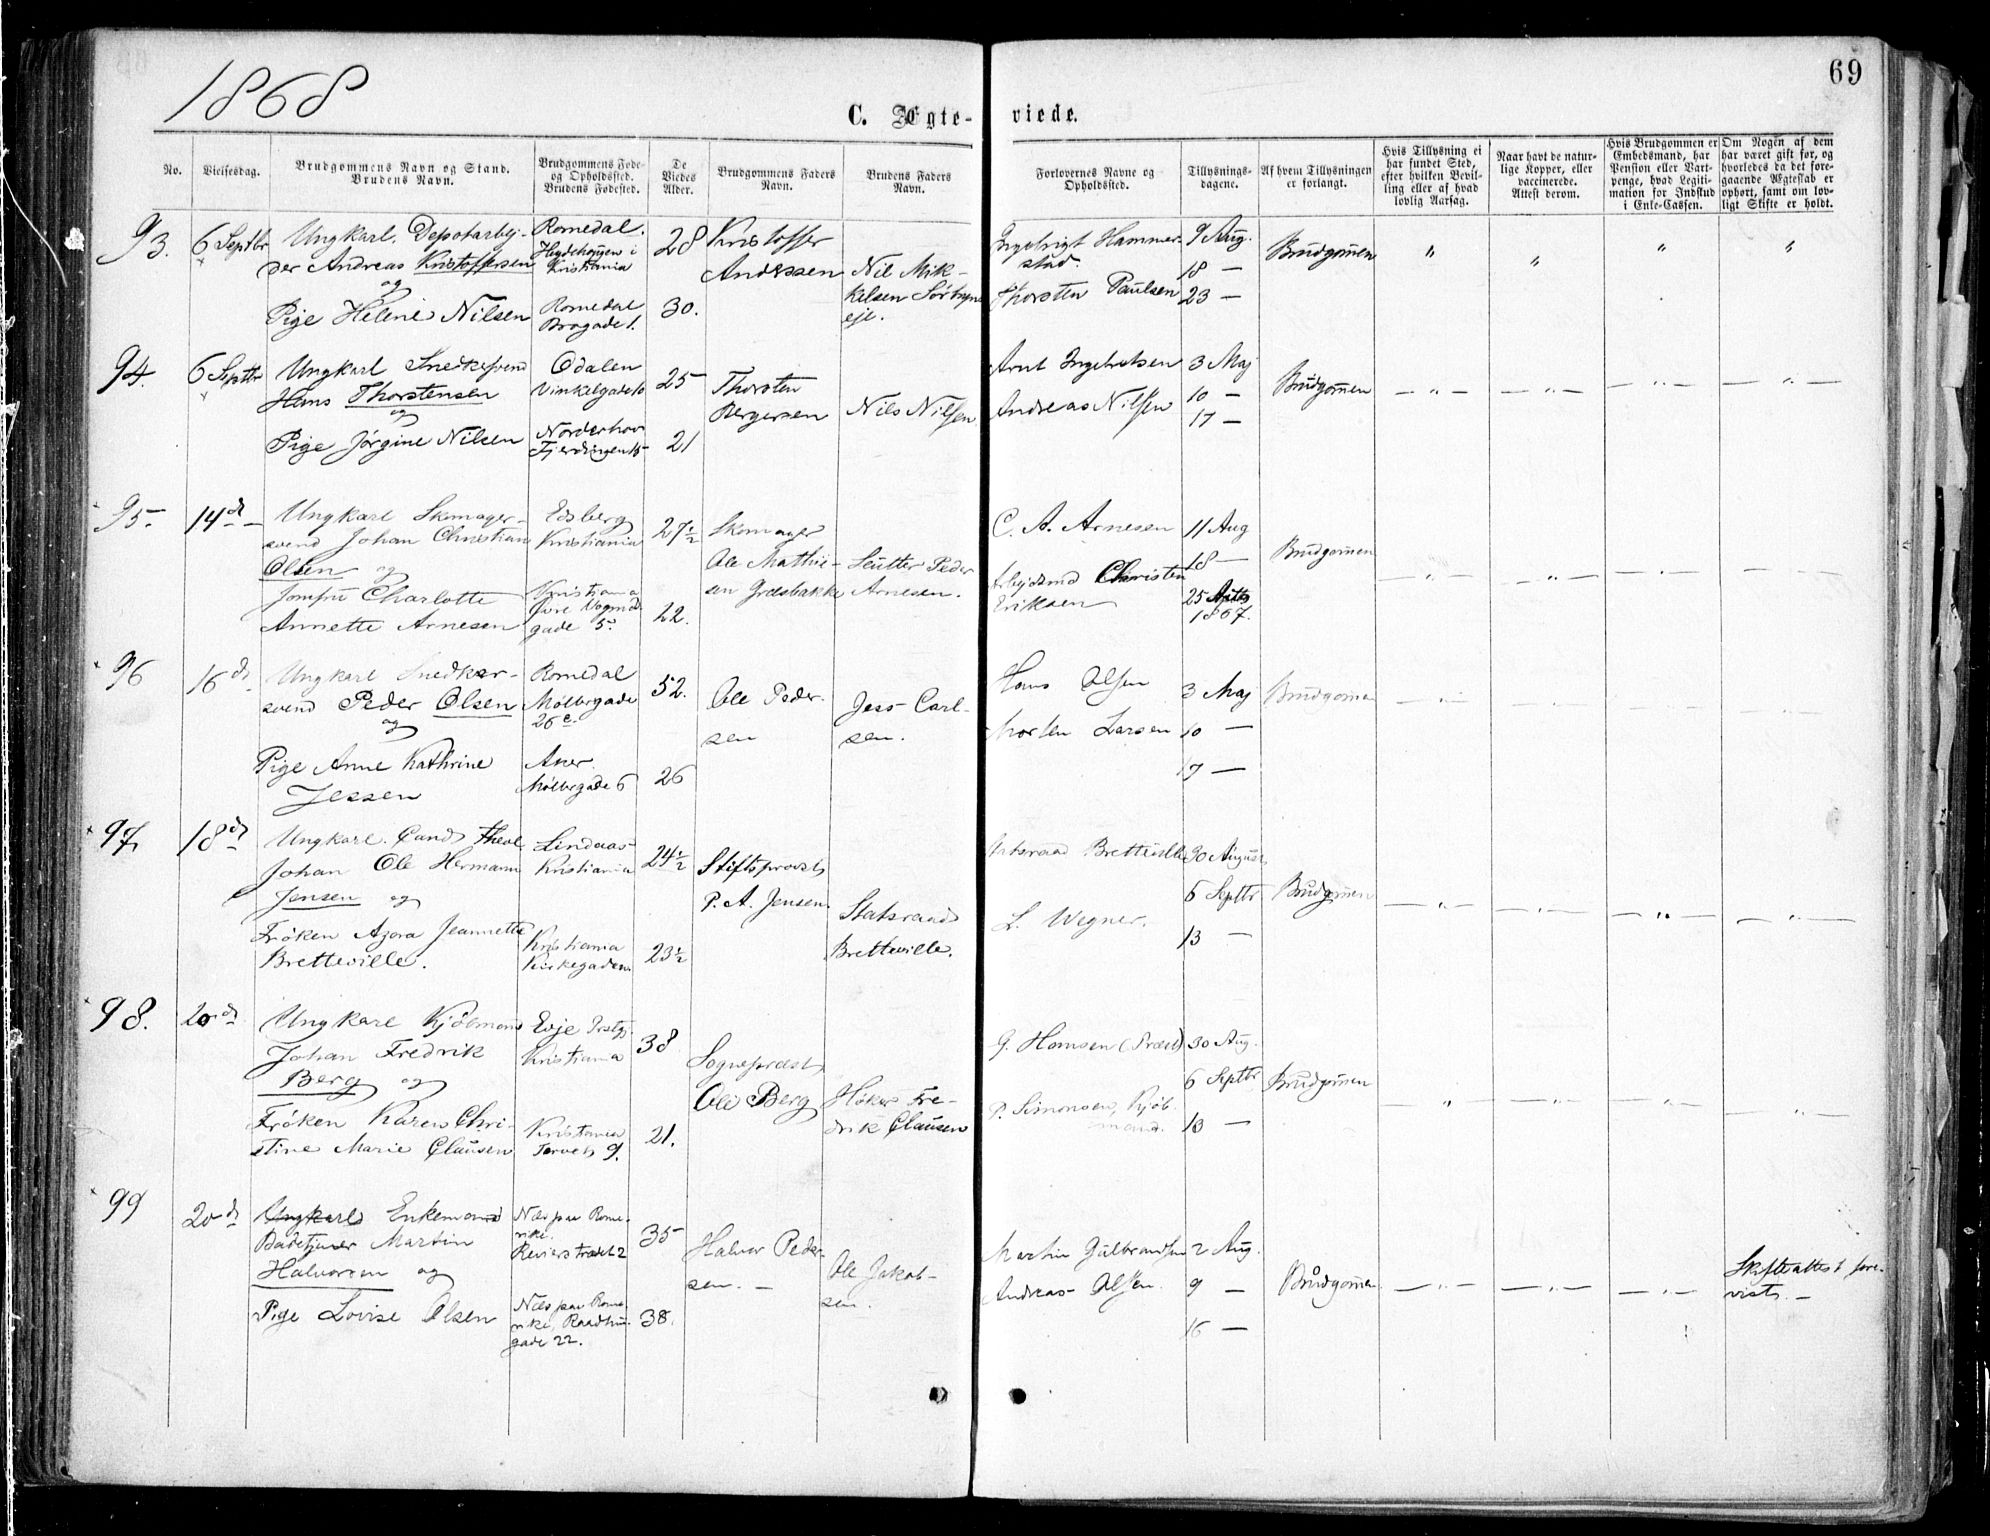 1868
69
C. Ægte-
viede.
No.
Vielsesdag.
Brudgommens Navn og Stand.
Brudens Navn.
Brudgommens Føde-
og Opholdssted.
Brudens Fødested.
De
Viedes
Alder.
Brudgommens Faders
Navn.
Brudens Faders
Navn.
Forlovernes Navne og
Opholdssted.
Tillysnings-
dagene.
Af hvem Tillysningen
er forlangt.
Hvis Tillysning ei
har fundet Sted,
efter hvilken Bevil-
ling eller af hvad
lovlig Aarsag.
Naar havt de natur-
lige Kopper, eller
vaccinerede.
Attest derom.
Hvis Brudgommen er
Embedsmand, har
Pension eller Vart-
penge, hvad Legiti-
mation for Indskud
i Enke-Cassen.
Om Nogen af dem
har været gift før, og
hvorledes da det fore-
gaaende Ægteskab er
ophørt, samt om lov-
ligt Skifte er holdt.
93.
6 Septbr
Ungkarl. Depotarbej-
der Andreas Kristoffersen
og
Pige Helene Nilsen
Romedal.
Kristiania
Romedal
28
30.
Kristoffer
Anderssen
Nil Mik-
kelsen
eje.
Ingebrigt Hammer-
stad.
Thorsten Paulsen
9 Aug.
18 —
23 —
Brudgommen
" " " "
94.
6 Septbr
Ungkarl
Hans Thorstensen
og
Pige Jørgine Nilsen
Odalen
Vinkelgaden
Norderhov
Fjerdingen 15
25
21
Thorsten
Bergersen
Nils Nilssen
Arnt
Andreas Nilssen
3 Maj
10 —
17 —
Brudgommen
— " — — " — — " — — " —
95.
14de
Ungkarl Skomager-
svend Johan Christian
Olsen og
Jomfru Charlotte
Annette Arnesen
Edsberg
Kristiania
Kristiania
gade 5.
27½
22.
Skomager
Ole Mathi-
sen Græsbakke
Peder
Arnesen.
C. A. Arnesen
Arbejdsmd Christen
Eriksen
11 Aug
18 —
25
1867.
Brudgommen
— " — — " — — " — — " —
96
16de
Ungkarl Snedker-
svend Peder Olsen
og
Pige Anne Kathrine
Jessen
Romedal
Møllergade
26 c.
Aker
Møllergade 6
52.
26
Ole Peder-
sen
Jess Carl-
sen.
Hans Olsen
Morten Larsen
3 Maj
10 —
17 —
Brudgommen
— " — — " — — " — — " —
97.
18de
Ungkarl. Cand. Theol
Johan Ole Hermann
Jensen og
Frøken Azora Jeannette
Bretteville.
Lindaas
Kristiania
Kristiania
Kirkegaden.
24½
23½
Stiftsprovst
P. A. Jensen
Statsraad
Bretteville.
Statsraad Bretteville
L. Wegner.
30 August
6 Septbr
13 —
Brudgommen
— " — — " — — " — — " —
98.
20de
Ungkarl Kjøbmand
Johan Fredrik
Berg og
Frøken Karen Chri-
stine Marie Clausen
Evje Prstg.
Kristiania
Kristiania
Torvet 9.
38
21.
Sogneprest
Ole Berg
Høker Fre-
drik Clausen
G. Homsen (Præst)
P. Simonsen, Kjøb-
mand.
30 Aug.
6 Septbr
13 —
Brudgommen
— " — — " — — " — — " —
99
20de
Ungkarl Enkemand
Badetjener Martin
Halvorsen og
Pige Lovise Olsen
Næs paa Rome-
rike.
Revierstrædet 2
Næs paa Rome-
rike, Raadhus-
gade 22.
35
38.
Halvor Peder-
sen. —
Ole Jakob-
sen.
Martin Gulbrandsen
Andreas Olsen.
2 Aug.
9 —
16 —
Brudgommen
— " — — " — — " —
Skifteattest fore-
vist. —